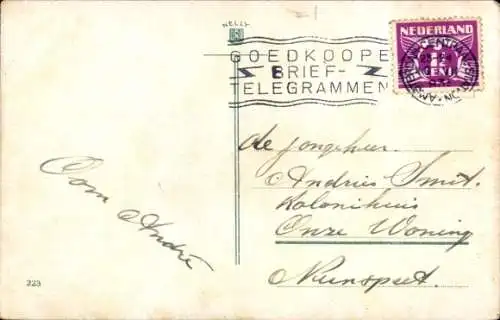 NELLY
GOEDKOOPE
BRIEF-
TELEGRAMMEN
NEDERLAND
CENT
AMSTERDAM CENTRAAL STATION
de jongeheer
Andries Smit.
Kolonihuis
Onze Woning
Nunspeet.
Oom André
223